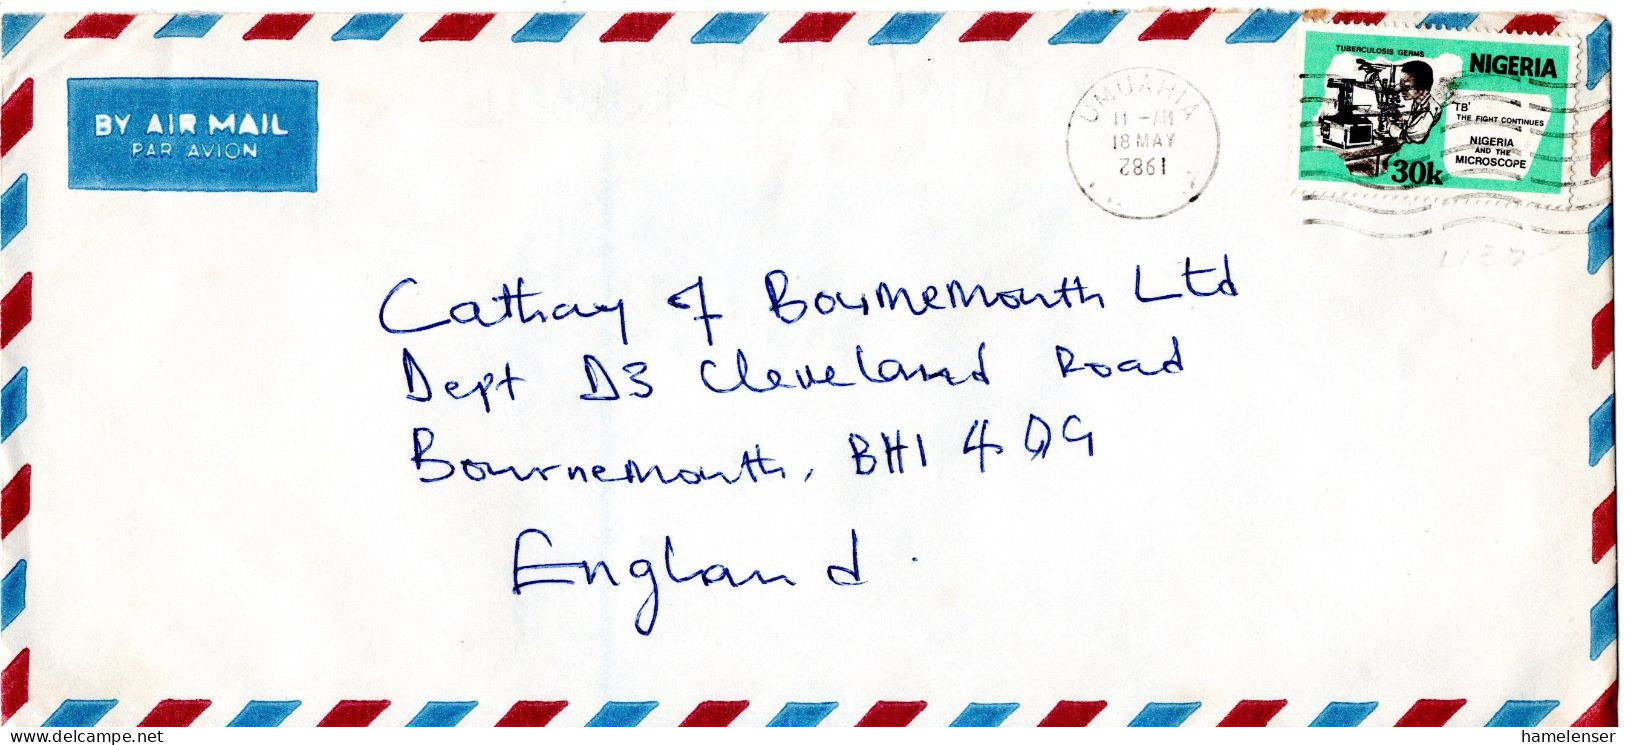 BY AIR MAIL
PAR AVION
UMUAHIA
11 - AM
18 MAY
1982
TUBERCULOSIS GERMS
NIGERIA
'TB'
THE FIGHT CONTINUES
NIGERIA
AND THE
MICROSCOPE
30k
Cathay of Bournemouth Ltd
Dept D3 Cleveland Road
Bournemouth, BH1 4QG
England.
www.delcampe.net
hamelenser